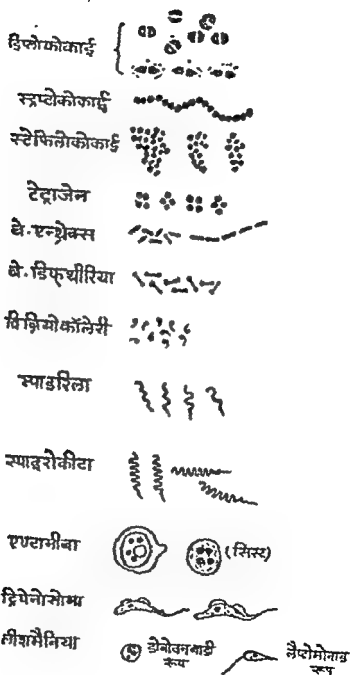 डिप्लोकोकाई
स्ट्रप्टोकोकाई
स्टेफिलोकोकाई
टेट्राजेन
बे. एन्थ्रेक्स
बे. डिफ्थीरिया
विब्रिमोकॉलेरी
स्पाइरिला
स्पाइरोकीटा
एण्टामीबा
(सिस्ट)
ट्रिपेनोसोमा
लीशमैनिया
डोनोवनबाडी
रूप
लैप्टोमोनाड
रूप